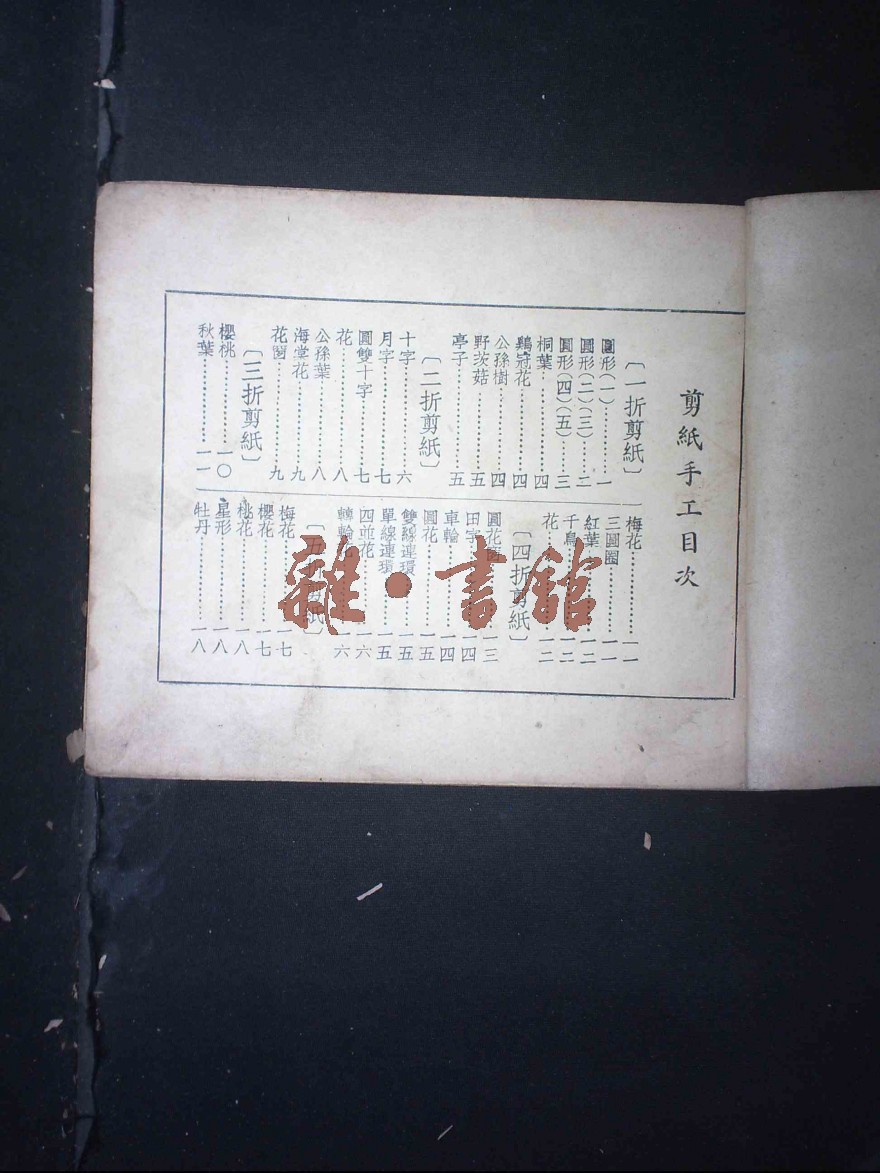 剪紙手工目次
〔一折剪紙〕
圓形(一)…………一
圓形(二)(三)……二
圓形(四)(五)……三
桐葉…………四
鷄冠花…………四
公孫樹…………四
野茨菇…………五
亭子…………五
〔二折剪紙〕
十字…………六
月字…………七
圓雙十字…………七
花…………八
公孫葉…………八
海棠花…………九
花窗…………九
〔三折剪紙〕
櫻桃…………一〇
秋葉…………一一
梅花…………一一
三圓圈…………一一
紅葉…………一二
千鳥…………一二
花…………一二
〔四折剪紙〕
圓花…………一三
田字…………一四
車輪…………一四
圓花…………一五
雙線連環…………一五
單線連環…………一五
四並花…………一六
轉輪…………一六
〔五折剪紙〕
梅花…………一七
櫻花…………一七
桃花…………一八
星形…………一八
牡丹…………一八
雜·書館